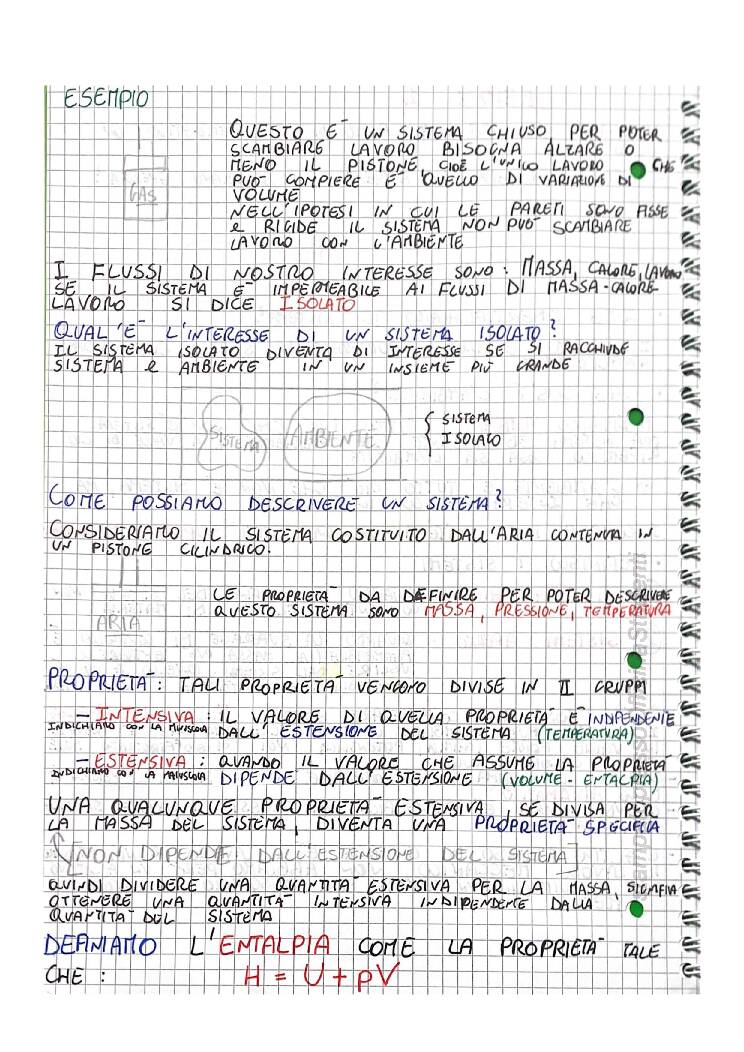 ESEMPIO
QUESTO E' UN SISTEMA CHIUSO, PER POTER
SCAMBIARE LAVORO BISOGNA ALZARE O
MENO IL PISTONE, CIOÈ L'UNICO LAVORO CHE
GAS
PUO' COMPIERE E' QUELLO DI VARIAZIONE DI
VOLUME
NELL'IPOTESI IN CUI LE PARETI SONO FISSE
e RIGIDE IL SISTEMA NON PUO' SCAMBIARE
LAVORO CON L'AMBIENTE
I FLUSSI DI NOSTRO INTERESSE SONO: MASSA, CALORE, LAVORO
SE IL SISTEMA E' IMPERMEABILE AI FLUSSI DI MASSA-CALORE-
LAVORO SI DICE ISOLATO
QUAL'E' L'INTERESSE DI UN SISTEMA ISOLATO?
IL SISTEMA ISOLATO DIVENTA DI INTERESSE SE SI RACCHIUDE
SISTEMA e AMBIENTE IN UN INSIEME PIÙ GRANDE
SISTEMA AMBIENTE
{ SISTEMA
ISOLATO
COME POSSIAMO DESCRIVERE UN SISTEMA?
CONSIDERIAMO IL SISTEMA COSTITUITO DALL'ARIA CONTENUTA IN
UN PISTONE CILINDRICO.
ARIA
LE PROPRIETA' DA DEFINIRE PER POTER DESCRIVERE
QUESTO SISTEMA SONO MASSA, PRESSIONE, TEMPERATURA
PROPRIETA': TALI PROPRIETA' VENGONO DIVISE IN II GRUPPI
- INTENSIVA: IL VALORE DI QUELLA PROPRIETA' E' INDIPENDENTE
INDICHIAMO CON LA MINUSCOLA DALL'ESTENSIONE DEL SISTEMA (TEMPERATURA)
- ESTENSIVA: QUANDO IL VALORE CHE ASSUME LA PROPRIETA'
INDICHIAMO CON LA MAIUSCOLA DIPENDE DALL'ESTENSIONE (VOLUME - ENTALPIA)
UNA QUALUNQUE PROPRIETA' ESTENSIVA, SE DIVISA PER
LA MASSA DEL SISTEMA, DIVENTA UNA PROPRIETA' SPECIFICA
[NON DIPENDE DALL'ESTENSIONE DEL SISTEMA]
QUINDI DIVIDERE UNA QUANTITA' ESTENSIVA PER LA MASSA, SIGNIFICA
OTTENERE UNA QUANTITA' INTENSIVA INDIPENDENTE DALLA
QUANTITA' DEL SISTEMA
DEFINIAMO L'ENTALPIA COME LA PROPRIETA' TALE
CHE : H = U + pV